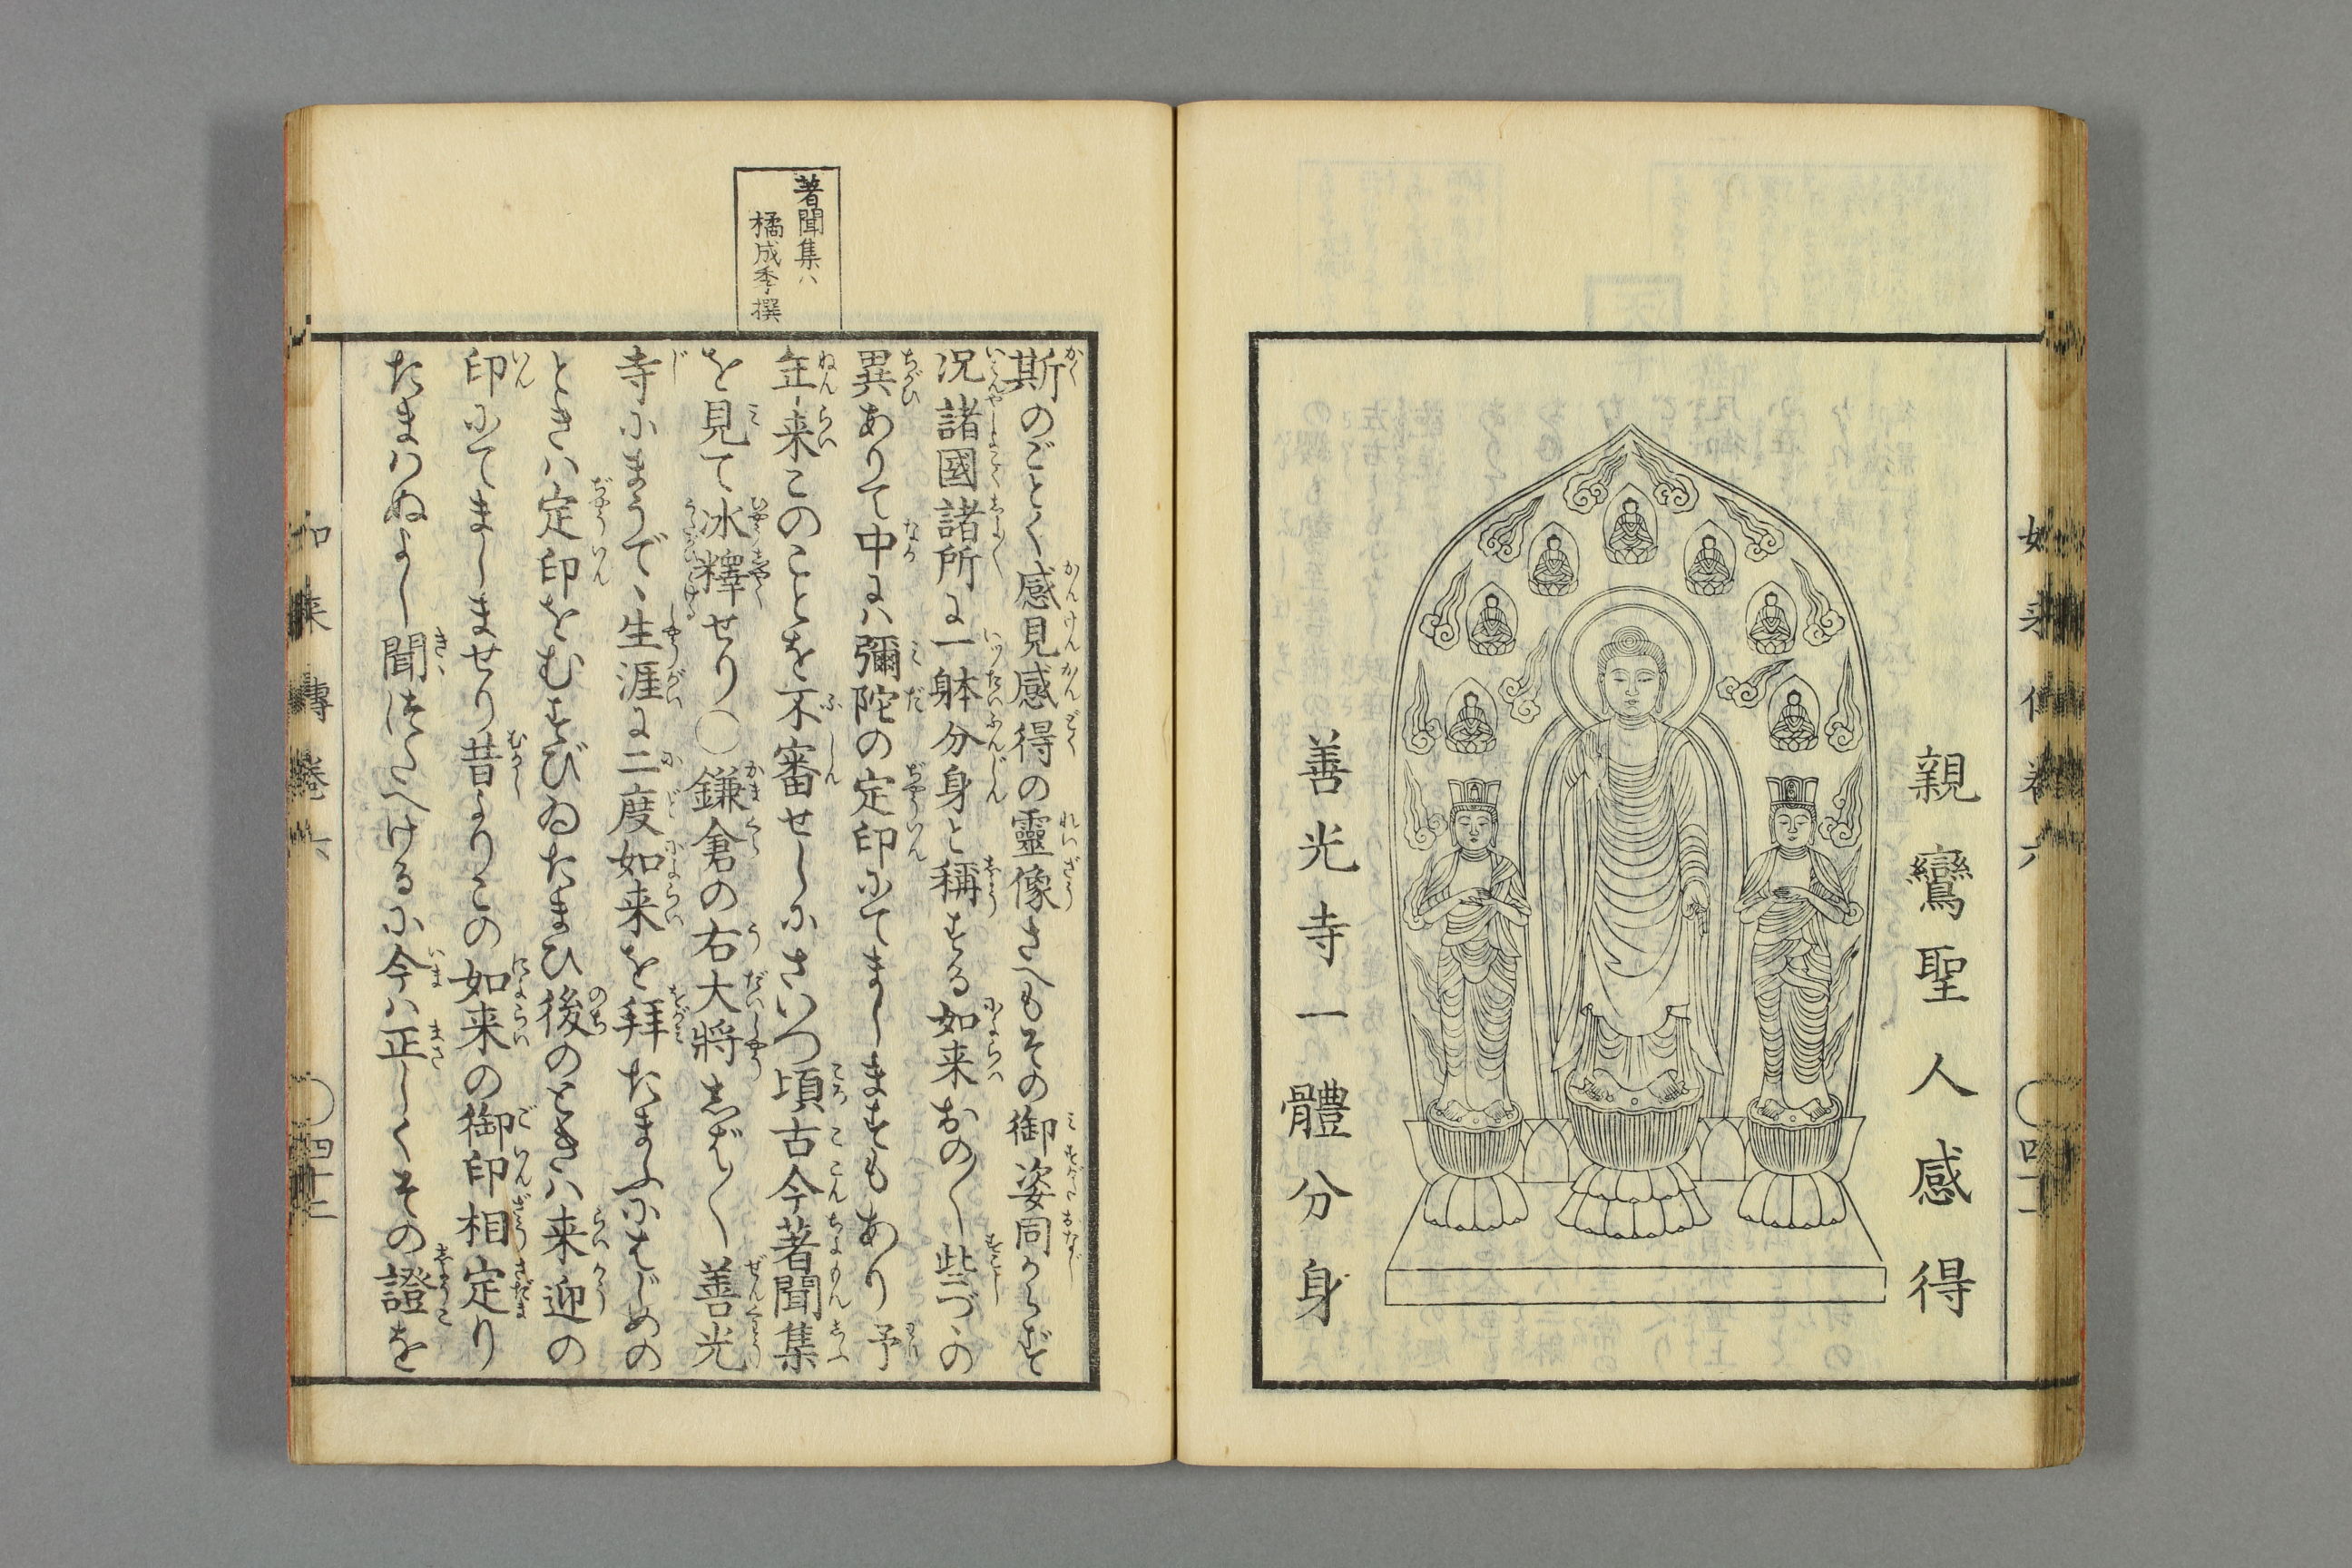 親鸞聖人感得
善光寺一體分身
著聞集ハ
橘成季撰
斯のごとく感見感得の靈像さへもその御姿同からず
况諸國諸所に一躰分身と稱する如来おの〱些づゝの
異ありて中にハ彌陀の定印にてましますもあり予
年来このことを不審せしにさいつ頃古今著聞集
を見て氷釋せり○鎌倉の右大將しば〱善光
寺にまうで、生涯に二度如来を拜たまふにはじめの
ときハ定印をむすびゐたまひ後のときハ来迎の
印にてましませり昔よりこの如来の御印相定り
たまハぬよし聞つたへけるに今ハ正しくその證を
如来傳卷六
四十二